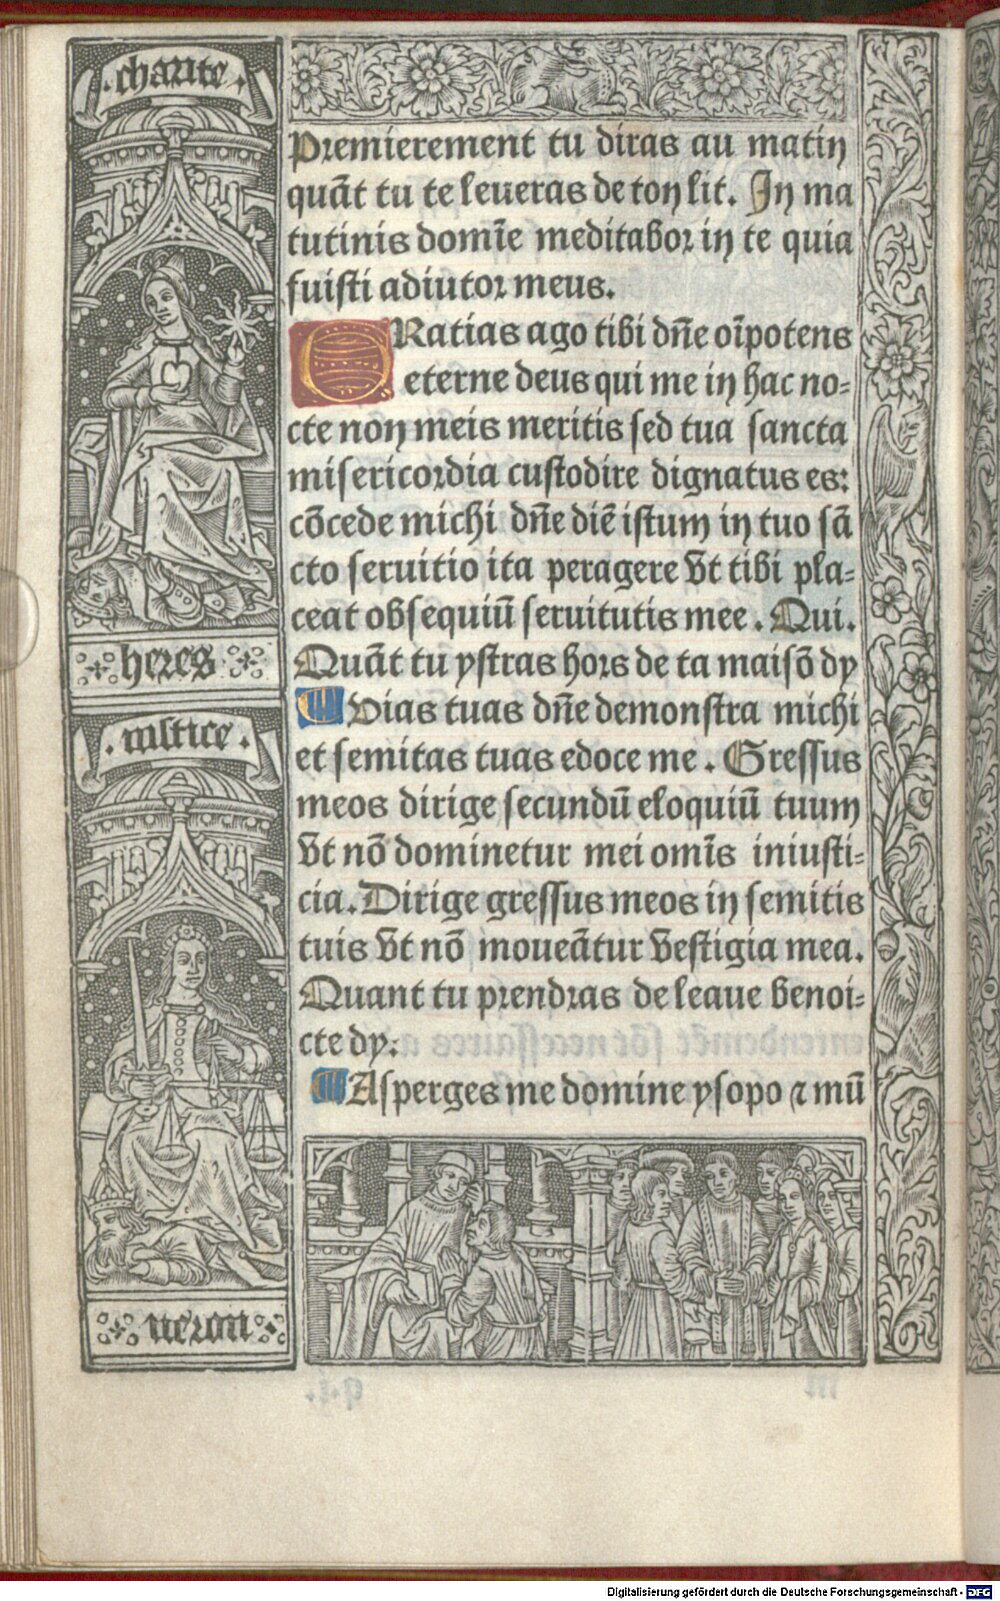 charite
heres
iustice
neron
Premierement tu diras au matin
quãt tu te leueras de ton lit. In ma
tutinis domĩe meditabor in te quia
fuisti adiutor meus.
GRatias ago tibi dñe oĩpotens
eterne deus qui me in hac no=
cte non meis meritis sed tua sancta
misericordia custodire dignatus es:
cõcede michi dñe diẽ istum in tuo sã
cto seruitio ita peragere vt tibi pla=
ceat obsequiũ seruitutis mee. Qui.
Quãt tu ystras hors de ta maisõ dy
Vias tuas dñe demonstra michi
et semitas tuas edoce me. Gressus
meos dirige secundũ eloquiũ tuum
vt nõ dominetur mei omĩs iniusti=
cia. Dirige gressus meos in semitis
tuis vt nõ moueãtur vestigia mea.
Quant tu prendras de leaue benoi=
cte dy:
Asperges me domine ysopo ⁊ mũ
Digitalisierung gefördert durch die Deutsche Forschungsgemeinschaft - DFG